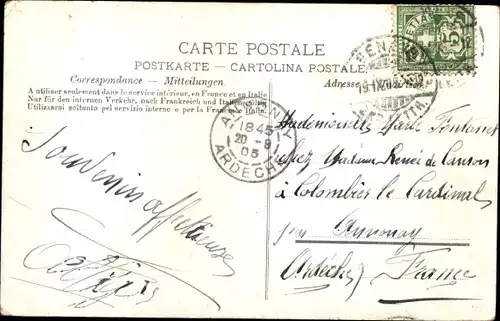 CARTE POSTALE
POSTKARTE - CARTOLINA POSTALE
Correspondance - Mitteilungen. Adresse
A utiliser seulement dans le service intérieur, en France et en Italie.
Nur für den internen Verkehr, nach Frankreich und Italien
Utilizzarsi soltanto pel servizio interno e per Francia e Italia.
HELVETIA
5
ANNONAY
1845
20 -9
05
ARDECHE
Souvenirs affectueuses
Mademoiselle Fontanes
chez Madame Renée de Canson
à Colombier le Cardinal
par Annonay
Ardèche France